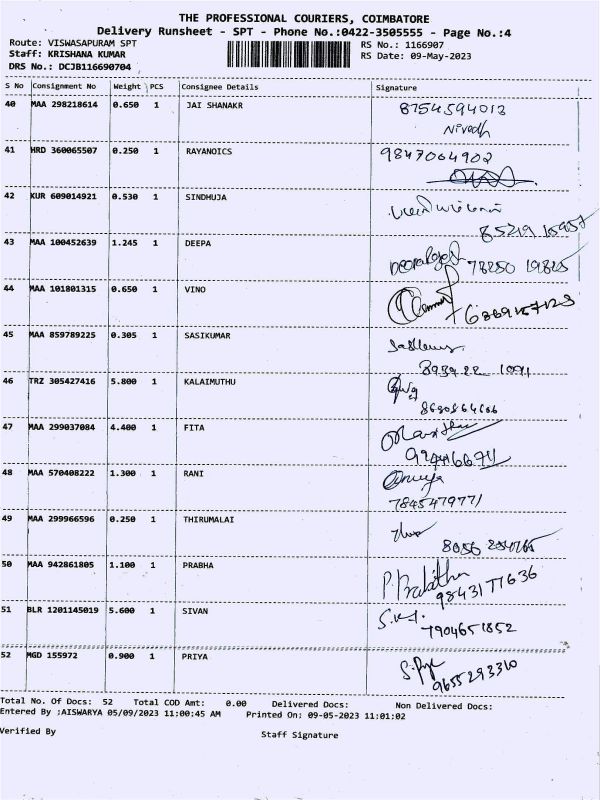 THE PROFESSIONAL COURIERS, COIMBATORE
Delivery Runsheet - SPT - Phone No.:0422-3505555 - Page No.:4
Route: VISWASAPURAM SPT RS No.: 1166907
Staff: KRISHANA KUMAR RS Date: 09-May-2023
DRS No.: DCJB116690704
S No Consignment No Weight PCS Consignee Details Signature
40 MAA 298218614 0.650 1 JAI SHANAKR 8754594013
Nivedh
41 HRD 360065507 0.250 1 RAYANOICS 9847064902
42 KUR 609014921 0.530 1 SINDHUJA
43 MAA 100452639 1.245 1 DEEPA
78250 19825
44 MAA 101801315 0.650 1 VINO
45 MAA 859789225 0.305 1 SASIKUMAR
46 TRZ 305427416 5.800 1 KALAIMUTHU
47 MAA 299037084 4.400 1 FITA
48 MAA 570408222 1.300 1 RANI
7845479771
49 MAA 299966596 0.250 1 THIRUMALAI
50 MAA 942861805 1.100 1 PRABHA P. Prabitha
98431 77636
51 BLR 1201145019 5.600 1 SIVAN
7904651852
52 MGD 155972 0.900 1 PRIYA
9655293310
Total No. Of Docs: 52 Total COD Amt: 0.00 Delivered Docs: Non Delivered Docs:
Entered By :AISWARYA 05/09/2023 11:00:45 AM Printed On: 09-05-2023 11:01:02
Verified By Staff Signature